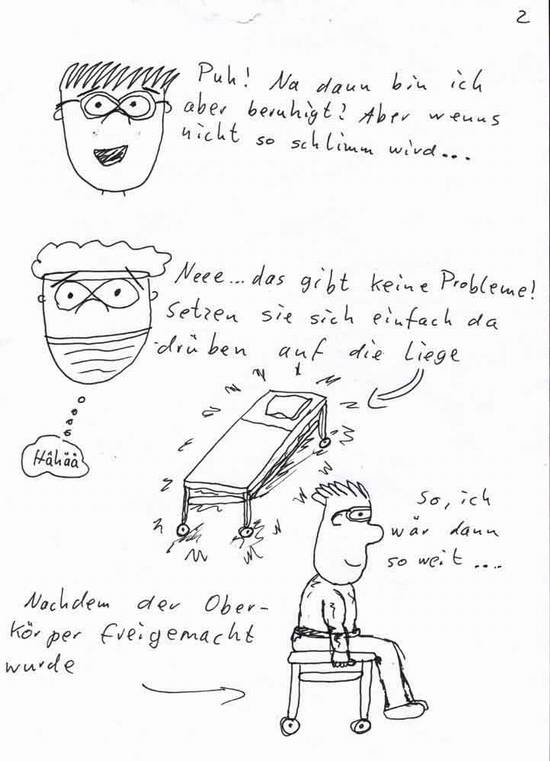 2
Puh! Na dann bin ich
aber beruhigt! Aber wenns
nicht so schlimm wird...
Neee...das gibt keine Probleme!
Setzen sie sich einfach da
drüben auf die Liege
Hähää
So, ich
wär dann
so weit....
Nachdem der Ober-
körper freigemacht
wurde